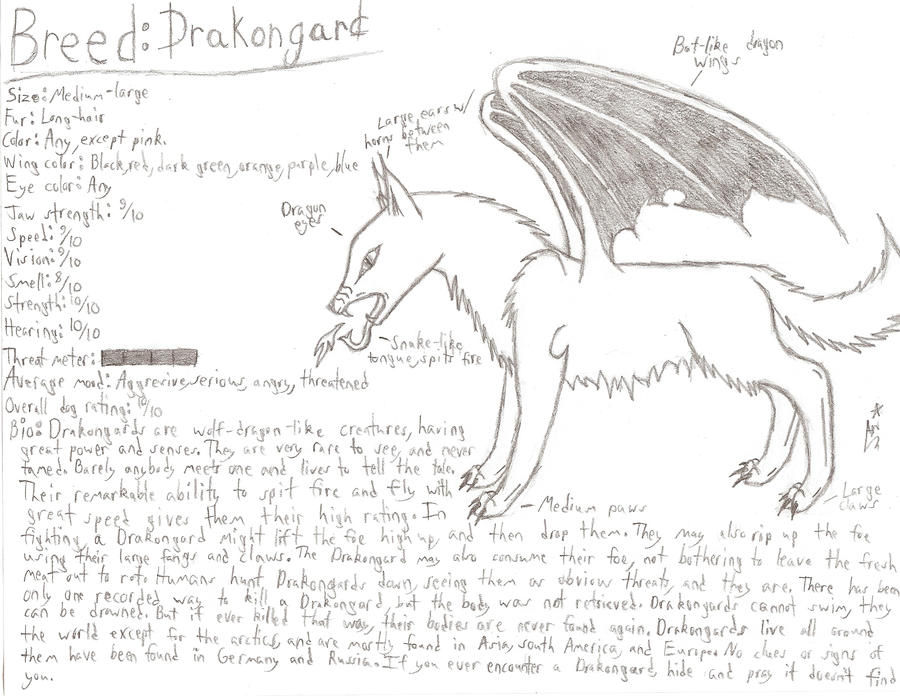 Breed: Drakongard
Size: Medium-large
Fur: Long-hair
Color: Any, except pink.
Wing color: Black, red, dark green, orange, purple, blue
Eye color: Any
Jaw strength: 9/10
Speed: 9/10
Vision: 9/10
Smell: 8/10
Strength: 10/10
Hearing: 10/10
Threat meter:
Average mood: Aggresive, serious, angry, threatened
Overall dog rating: 10/10
Bat-like dragon
wings
Large ears w/
horns between
them
Dragon
eyes
Snake-like
tongue, spits fire
Medium paws
Large
claws
Bio: Drakongards are wolf-dragon-like creatures, having
great power and senses. They are very rare to see, and never
tamed. Barely anybody meets one and lives to tell the tale.
Their remarkable ability to spit fire and fly with
great speed gives them their high rating. In
fighting, a Drakongard might lift the foe high up, and then drop them. They may also rip up the foe
using their large fangs and claws. The Drakongard may also consume their foe, not bothering to leave the fresh
meat out to rot. Humans hunt Drakongards down, seeing them as obvious threats, and they are. There has been
only one recorded way to kill a Drakongard, but the body was not retrieved. Drakongards cannot swim, they
can be drowned. But if ever killed that way, their bodies are never found again. Drakongards live all around
the world except for the arctics, and are mostly found in Asia, South America, and Europe. No clues or signs of
them have been found in Germany and Russia. If you ever encounter a Drakongard, hide and pray it doesn't find
you.